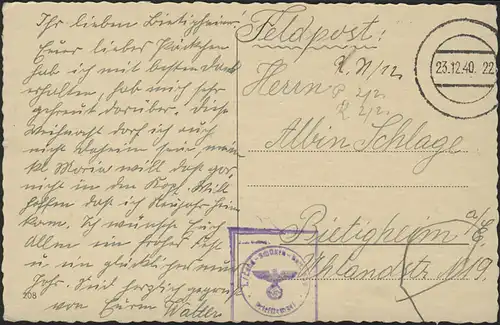 Ihr lieben Bietigheimer!
Euer liebes Päckchen
hab ich mit bestem Dank
erhalten, hab mich sehr
gefreut darüber. Diese
Weihnacht darf ich auch
nicht Daheim sein
Maria will das gar
nicht in den Kopf. Will
hoffen das ich Neujahr heim
kom. Ich wünsche Euch
Allen ein frohes Fest
u. ein glückliches neues
Jahr. Seid herzlich gegrüßt
von Eurem Walter
208
Feldpost!
23.12.40. 22
Herrn
Albin Schlage
Bietigheim a/
Uhlandstr 19.